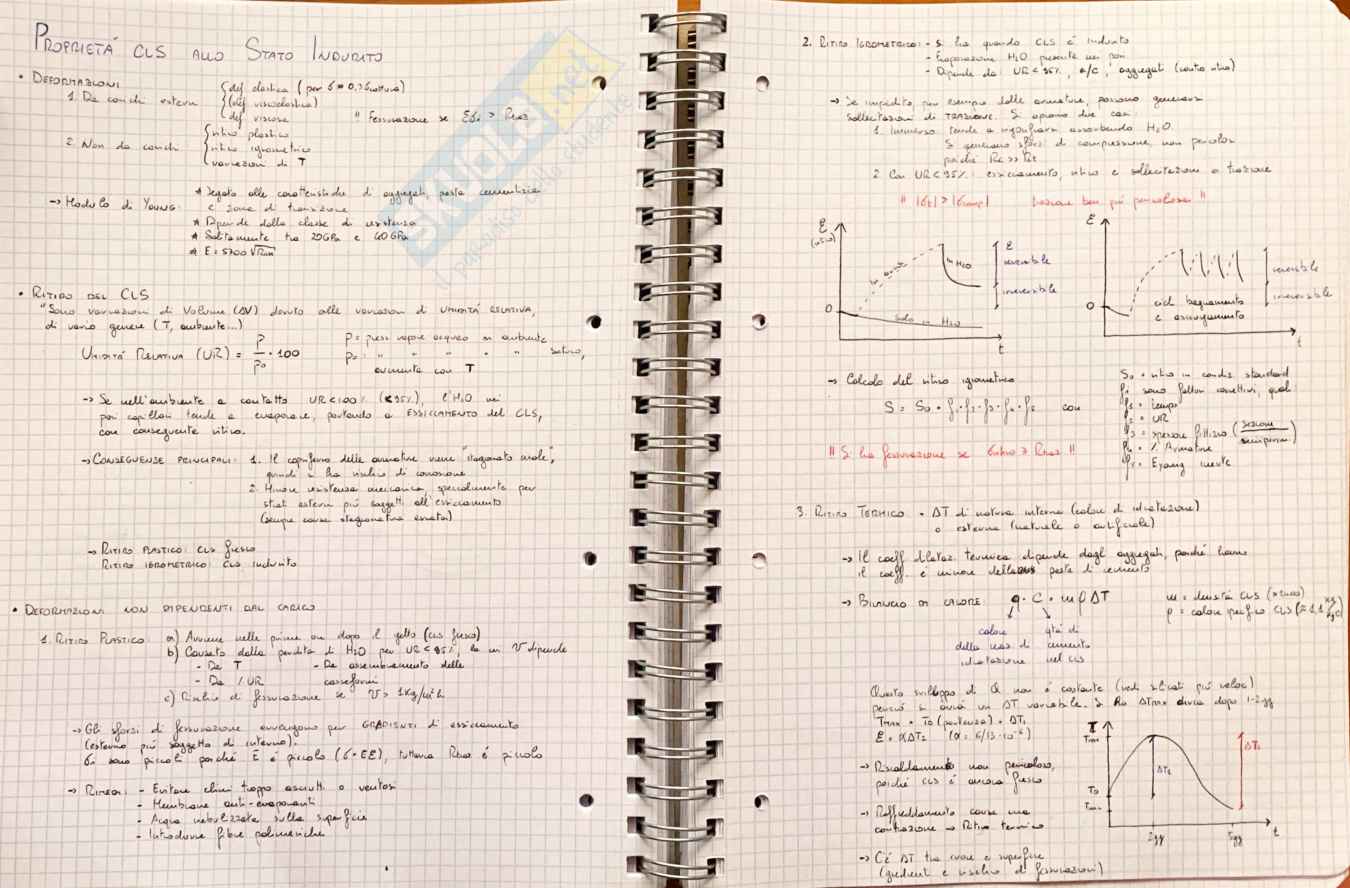 PROPRIETÁ CLS ALLO STATO INDURITO
• DEFORMAZIONI
1. Da carichi esterni
def elastica (per σ = 0,3 rottura)
(def viscoelastica)
def viscose
" Fessurazione se Eδ > Rtraz
2. Non da carichi:
ritiro plastico
ritiro igrometrico
variazioni di T
→ Modulo di Young:
* Legato alle caratteristiche di aggregati, pasta cementizia
e zona di transizione
* Dipende dalla classe di resistenza
* Solitamente tra 20GPa e 40GPa
* E = 5700 √Rcm
• RITIRO DEL CLS
"Sono variazioni di Volume (ΔV) dovuto alle variazioni di UMIDITÁ RELATIVA,
di vario genere (T, ambiente...)
UMIDITÁ RELATIVA (UR) = P/Po · 100
P = press vapore acqueo in ambiente
Po = " " " " " saturo,
aumenta con T
→ Se nell'ambiente a contatto UR<100% (<95%), l'H2O nei
pori capillari tende a evaporare, portando a ESSICCAMENTO del CLS,
con conseguente ritiro.
→ CONSEGUENSE PRINCIPALI: 1. Il copriferro delle armature viene "stagionato male",
quindi si ha rischio di corrosione
2. Minore resistenza meccanica, specialmente per
strati esterni più soggetti all'essiccamento
(sempre causa stagionatura errata)
→ RITIRO PLASTICO: CLS fresco
RITIRO IGROMETRICO: CLS indurito
• DEFORMAZIONI NON DIPENDENTI DAL CARICO
1. RITIRO PLASTICO: a) Avviene nelle prime ore dopo il getto (CLS fresco)
b) Causato dalla perdita di H2O per UR<95%, la cui V dipende
- Da T - Da assemblamento delle
- Da % UR casseformi
c) Rischio di fessurazione se V > 1Kg/m²h
→ Gli sforzi di fessurazione avvengono per GRADIENTI di essiccamento
(esterno più soggetto di interno).
σ sono piccoli perché E é piccolo (σ=EE), tuttavia Rtraz é piccolo
→ RIMEDI: - Evitare climi troppo asciutti o ventosi
- Membrane anti-evaporanti
- Acqua nebulizzata sulla superficie
- Introdurre fibre polimeriche
2. RITIRO IGROMETRICO: - Si ha quando CLS é indurito
- Evaporazione H2O presente nei pori
- Dipende da UR<95%, a/c, aggregati (contro ritiro)
→ Se impedito, per esempio dalle armature, possono generarsi
sollecitazioni di TRAZIONE. Si aprono due casi:
1. Immerso: tende a rigonfiarsi assorbendo H2O.
Si generano sforzi di compressione, non pericolosi
perché Rc >> Rt
2. Con UR<95%: essiccamento, ritiro e sollecitazione a trazione
" |σt| > |σcomp| trazione ben più pericolosa! "
ε
(ritiro)
In aria
In H2O
ε
reversibile
irreversibile
0
Solo in H2O
t
ε
reversibile
irreversibile
0
cicli bagnamento
e asciugamento
t
→ Calcolo del ritiro igrometrico
S = So · f1 · f2 · f3 · f4 · f5 con
So = ritiro in condiz. standard
fi sono fattori correttivi, quali
f1 = tempo
f2 = UR
f3 = spessore fittizio (sezione/semiperim)
f4 = % Armature
f5 = Eyang inerte
!! Si ha fessurazione se σritiro > Rtraz !!
3. RITIRO TERMICO • ΔT di natura interna (calore di idratazione)
o esterna (naturale o artificiale)
→ Il coeff dilataz. termica dipende dagli aggregati, poiché hanno
il coeff. é minore della pasta di cemento
→ BILANCIO DI CALORE: q · C = m ρ ΔT
m = densitá CLS
ρ = calore specifico CLS (≈ 1,1 KJ/KgC)
calore
della reaz. di
idratazione
qtá di
cemento
nel cls
Questo sviluppo di Q non é costante (vedi silicati più veloci)
perciò si avrá un ΔT variabile. Si ha ΔTmax circa dopo 1-2gg
Tmax = To (partenza) + ΔT1
ε = αΔT2 (α = 6/13·10⁻⁶)
→ Riscaldamento non pericoloso,
poiché CLS é ancora fresco
→ Raffreddamento causa una
contrazione → Ritiro termico
→ C'é ΔT tra cuore e superficie
(gradienti e rischio di fessurazioni)
T
Tmax
To
ΔT1
ΔT2
2gg
t
skuola.net
il paradiso dello studente